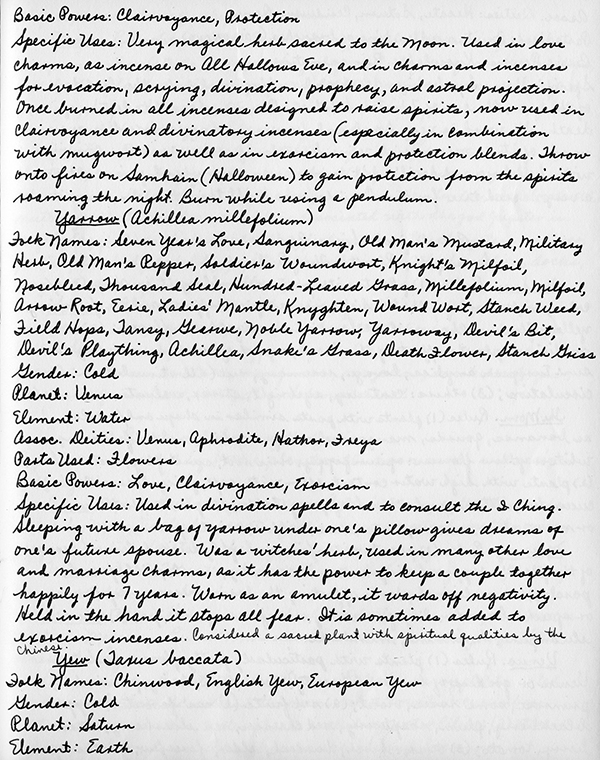 Basic Powers: Clairvoyance, Protection
Specific Uses: Very magical herb sacred to the Moon. Used in love
charms, as incense on All Hallows Eve, and in charms and incenses
for evocation, scrying, divination, prophecy, and astral projection.
Once burned in all incenses designed to raise spirits, now used in
clairvoyance and divinatory incenses (especially in combination
with mugwort) as well as in exorcism and protection blends. Throw
onto fires on Samhain (Halloween) to gain protection from the spirits
roaming the night. Burn while using a pendulum.
Yarrow (Achillea millefolium)
Folk Names: Seven Year's Love, Sanguinary, Old Man's Mustard, Military
Herb, Old Man's Pepper, Soldier's Woundwort, Knight's Milfoil,
Nosebleed, Thousand Seal, Hundred-Leaved Grass, Millefolium, Milfoil,
Arrow Root, Eerie, Ladies' Mantle, Knyghten, Wound Wort, Stanch Weed,
Field Hops, Tansy, Gearwe, Noble Yarrow, Yarroway, Devil's Bit,
Devil's Plaything, Achillea, Snake's Grass, Death Flower, Stanch Griss
Gender: Cold
Planet: Venus
Element: Water
Assoc. Deities: Venus, Aphrodite, Hathor, Freya
Parts Used: Flowers
Basic Powers: Love, Clairvoyance, Exorcism
Specific Uses: Used in divination spells and to consult the I Ching.
Sleeping with a bag of yarrow under one's pillow gives dreams of
one's future spouse. Was a witches' herb, used in many other love
and marriage charms, as it has the power to keep a couple together
happily for 7 years. Worn as an amulet, it wards off negativity.
Held in the hand it stops all fear. It is sometimes added to
exorcism incenses. Considered a sacred plant with spiritual qualities by the
Chinese.
Yew (Taxus baccata)
Folk Names: Chinwood, English Yew, European Yew
Gender: Cold
Planet: Saturn
Element: Earth